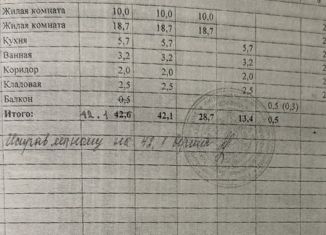 Жилая комната 10,0 10,0 10,0
Жилая комната 18,7 18,7 18,7
Кухня 5,7 5,7 5,7
Ванная 3,2 3,2 3,2
Коридор 2,0 2,0 2,0
Кладовая 2,5 2,5 2,5
Балкон 0,5 0,5 (0,3)
Итого: 42.1 42,6 42,1 28,7 13,4 0,5
на 42,1 верить